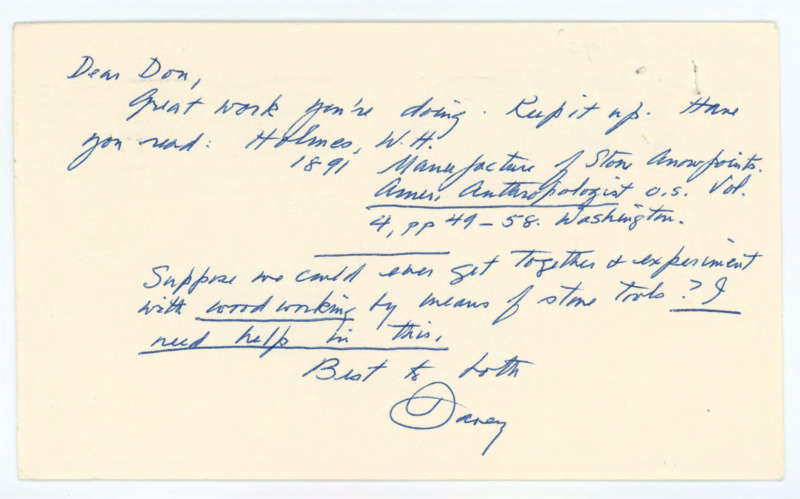 Dear Don,
Great work you're doing. Keep it up. Have
you read: Holmes, W.H.
1891 Manufacture of Stone Arrowpoints.
Amer. Anthropologist o.s. Vol.
4, pp 49-58. Washington.
Suppose we could ever get together & experiment
with woodworking by means of stone tools? I
need help in this.
Best to both
Davey